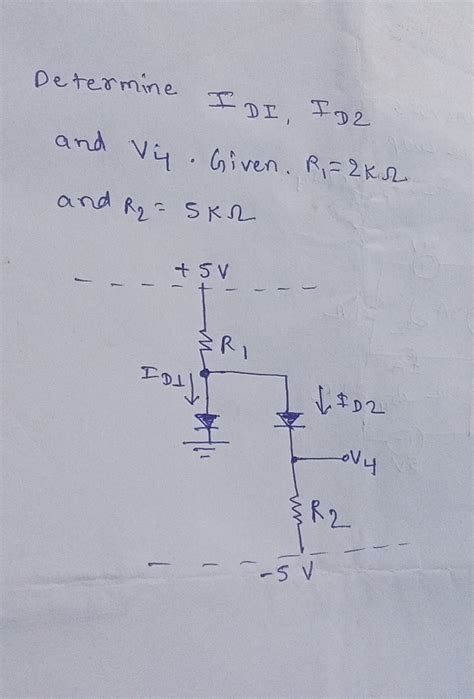 Determine I DI, I D2
and V4 . Given. R1 = 2KΩ
and R2 = 5KΩ
+ 5V
R1
I D1
I D2
V4
R2
-5 V